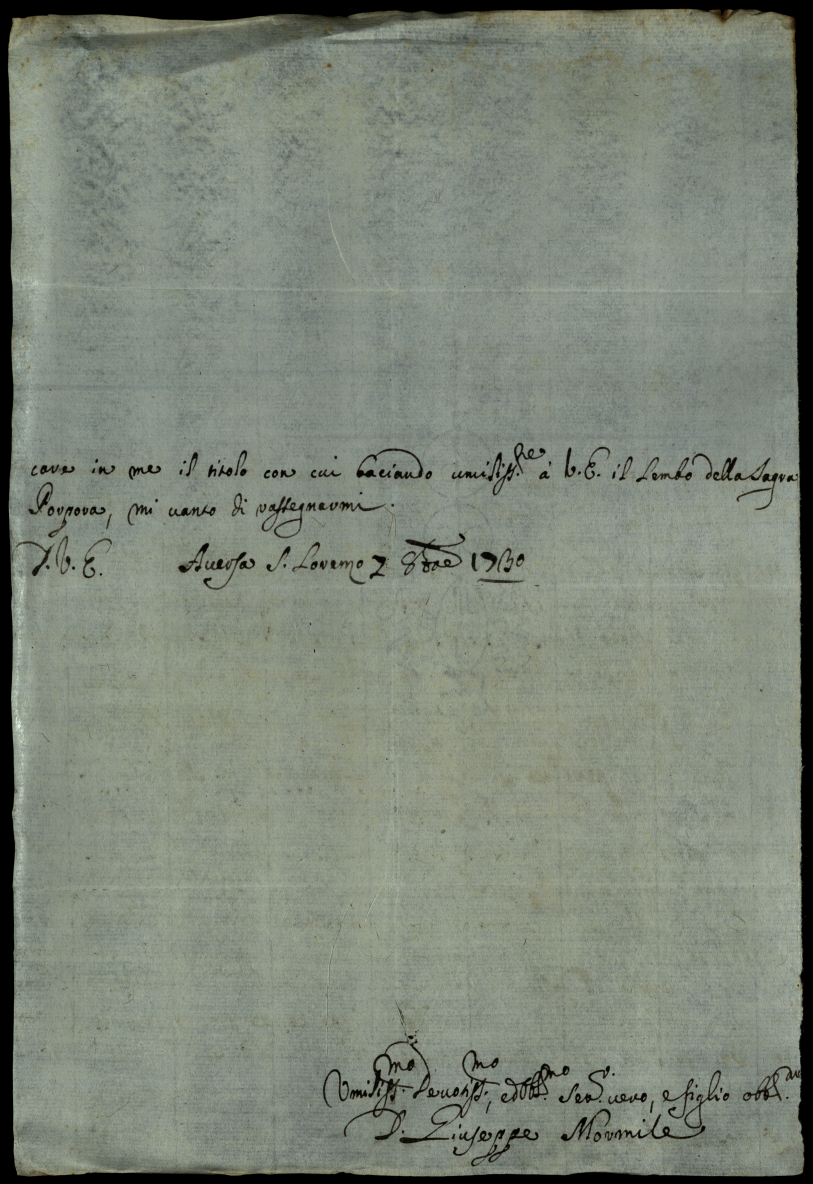 care in me il titolo con cui baciando umiliss.te à V.E. il Lembo della Sagra
Porpora, mi vanto di rassegnarmi.
D.V.E. Aversa S. Lorenzo 7 8bre 1730
Umiliss.mo Devotiss.mo, ed Obb.mo Ser.r vero, e figlio obb.mo
D. Giuseppe Mormile